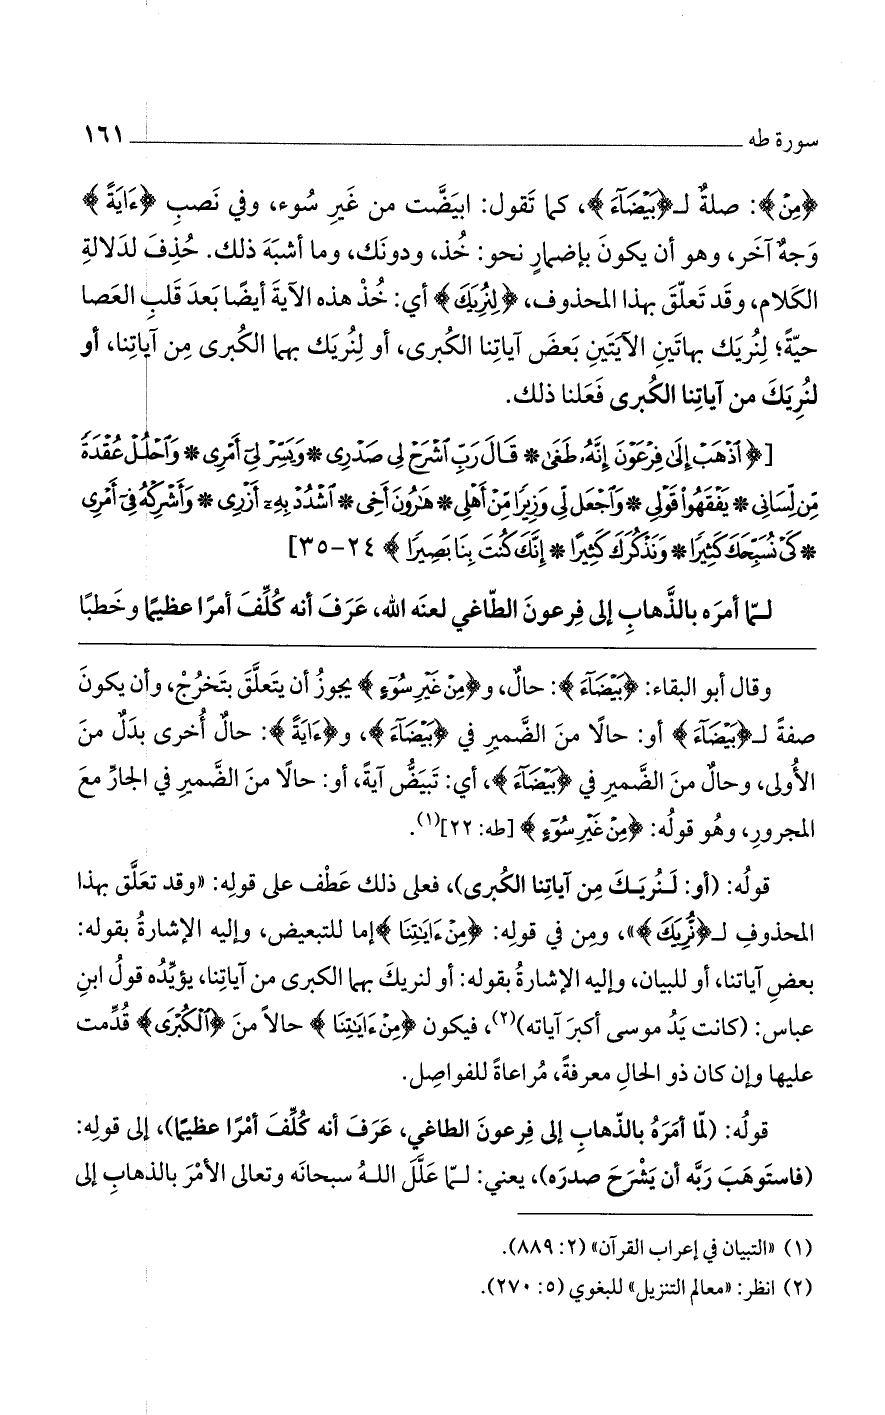 سورة طه ١٦١
﴿مِنْ﴾: صلةٌ لـ﴿بَيْضَآءَ﴾، كما تَقول: ابيَضَّت من غَيرِ سُوء، وفي نَصبِ ﴿ءَايَةً﴾
وَجهٌ آخَر، وهو أن يكونَ بإضمارِ نحو: خُذ، ودونَك، وما أشبَهَ ذلك. حُذِفَ لدَلالةِ
الكَلام، وقَد تَعلّقَ بهذا المحذوف، ﴿لِنُرِيَكَ﴾ أي: خُذْ هذه الآيةَ أيضًا بَعدَ قَلبِ العَصا
حيّةً؛ لِنُريَك بهاتَينِ الآيتَينِ بَعضَ آياتِنا الكُبرى، أو لِنُريَك بهما الكُبرى مِن آياتِنا، أو
لنُرِيَكَ من آياتِنا الكُبرى فَعَلنا ذلك.
[﴿ٱذْهَبْ إِلَىٰ فِرْعَوْنَ إِنَّهُۥ طَغَىٰ * قَالَ رَبِّ ٱشْرَحْ لِى صَدْرِى * وَيَسِّرْ لِىٓ أَمْرِى * وَٱحْلُلْ عُقْدَةً
مِّن لِّسَانِى * يَفْقَهُوا۟ قَوْلِى * وَٱجْعَل لِّى وَزِيرًا مِّنْ أَهْلِى * هَـٰرُونَ أَخِى * ٱشْدُدْ بِهِۦٓ أَزْرِى * وَأَشْرِكْهُ فِىٓ أَمْرِى
* كَىْ نُسَبِّحَكَ كَثِيرًا * وَنَذْكُرَكَ كَثِيرًا * إِنَّكَ كُنتَ بِنَا بَصِيرًا﴾ ٢٤-٣٥]
لـمّا أمرَه بالذَّهابِ إلى فِرعونَ الطّاغي لعنَه الله، عَرَفَ أنه كُلِّفَ أمرًا عظيمًا وخَطبًا
وقال أبو البقاء: ﴿بَيْضَآءَ﴾: حالٌ، و﴿مِنْ غَيْرِ سُوٓءٍ﴾ يجوزُ أن يتَعلَّقَ بتَخرُجْ، وأن يكونَ
صفةً لـ﴿بَيْضَآءَ﴾ أو: حالًا منَ الضَّميرِ في ﴿بَيْضَآءَ﴾، و﴿ءَايَةً﴾: حالٌ أُخرى بدَلٌ منَ
الأُولى، وحالٌ منَ الضَّميرِ في ﴿بَيْضَآءَ﴾، أي: تَبيَضُّ آيةً، أو: حالًا منَ الضَّميرِ في الجارِّ معَ
المجرورِ، وهُو قولُه: ﴿مِنْ غَيْرِ سُوٓءٍ﴾ [طه: ٢٢](١).
قولُه: (أو: لَـنُريَـكَ مِن آياتِنا الكُبرى)، فعلى ذلك عَطْف على قولِه: «وقد تعَلَّق بهذا
المحذوفِ لـ﴿نُرِيَكَ﴾»، ومِن في قولِه: ﴿مِنْ ءَايَـٰتِنَا﴾ إما للتبعيض، وإليه الإشارةُ بقوله:
بعضِ آياتنا، أو للبيان، وإليه الإشارةُ بقوله: أو لنريكَ بهما الكبرى من آياتِنا، يؤيِّدُه قولُ ابنِ
عباس: (كانت يَدُ موسى أكبرَ آياته)(٢)، فيكون ﴿مِنْ ءَايَـٰتِنَا﴾ حالاً منَ ﴿ٱلْكُبْرَى﴾ قُدِّمت
عليها وإن كان ذو الحالِ معرفةً، مُراعاةً للفواصِل.
قولُه: (لمّا أمَرَهُ بالذّهابِ إلى فِرعونَ الطاغي، عَرَفَ أنه كُلِّفَ أمْرًا عظيمًا)، إلى قولِه:
(فاستَوهَبَ رَبَّه أن يَشْرَحَ صدرَه)، يعني: لـمّا عَلَّلَ اللـهُ سبحانَه وتعالى الأمْرَ بالذهابِ إلى
(١) «التبيان في إعراب القرآن» (٢: ٨٨٩).
(٢) انظر: «معالم التنزيل» للبغوي (٥: ٢٧٠).